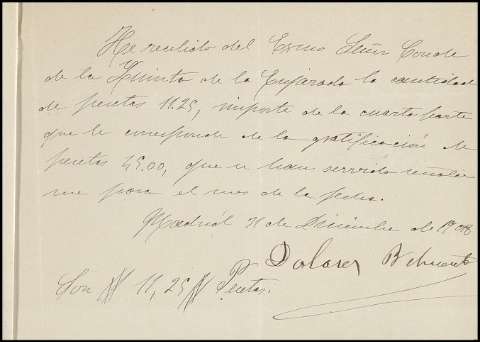 He recibido del Exmo Señor Conde
de la Quinta de la Enjarada la cantidad
de pesetas 11.25, importe de la cuarta parte
que le corresponde de la gratificación de
pesetas 45.00, que se han servido señalar
me para el mes de la fecha.
Madrid 31 de Diciembre de
Dolores
Son 11,25 Pesetas.